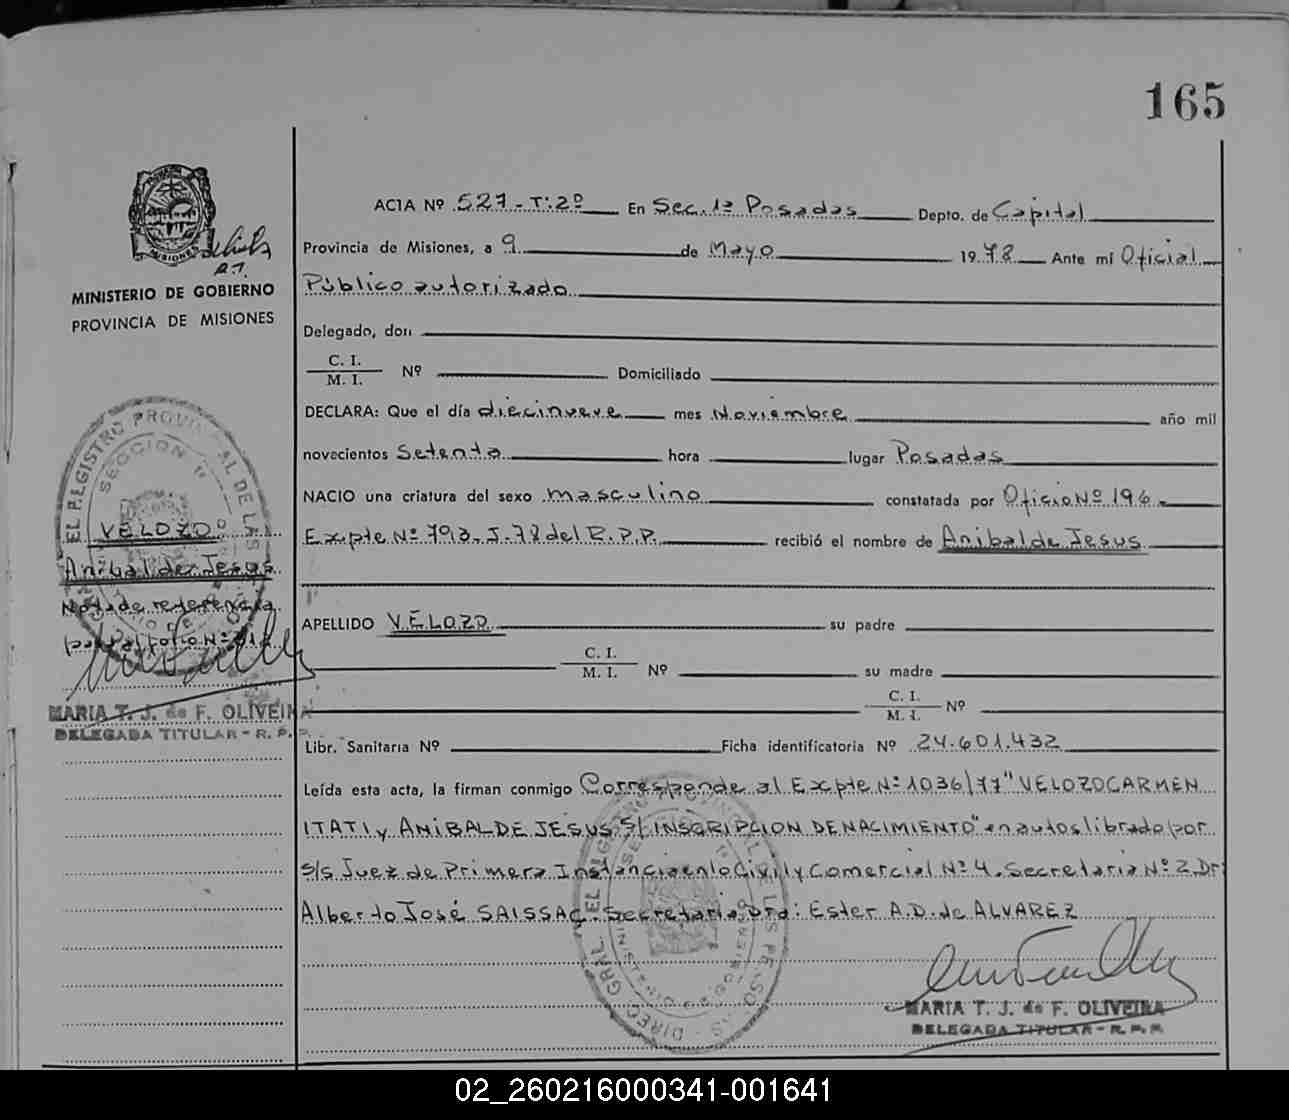 165
ACTA Nº 527-Tº2º En Sec. 1ª Posadas Depto. de Capital
Provincia de Misiones, a 9 de Mayo 1978 Ante mí Oficial
Público autorizado
Delegado, don
C. I.
M. I. Nº Domiciliado
DECLARA: Que el día diecinueve mes Noviembre año mil
novecientos Setenta hora lugar Posadas
NACIO una criatura del sexo masculino constatada por Oficio Nº 196-
Expte Nº 793-J-78 del R.P.P. recibió el nombre de Anibal de Jesus
APELLIDO VELOZO su padre
C. I.
M. I. Nº su madre
C. I.
M. I. Nº
Libr. Sanitaria Nº Ficha identificatoria Nº 24.601.432
Leída esta acta, la firman conmigo Corresponde al Expte Nº 1036/77 "VELOZO CARMEN
ITATI y ANIBAL DE JESUS S/ INSCRIPCION DE NACIMIENTO" en autos librado por
S/S Juez de Primera Instancia en lo Civil y Comercial Nº 4. Secretaria Nº 2 Dr:
Alberto José SAISSAC. Secretaria Dra: Ester A.D. de ALVAREZ
MARIA T. J. de F. OLIVEIRA
DELEGADA TITULAR - R. P. P.
MISIONES
MINISTERIO DE GOBIERNO
PROVINCIA DE MISIONES
EL REGISTRO PROVINCIAL DE LAS
SECCION 1ª
VELOZO
Anibal de Jesus
Nota de referencia
folio Nº
MARIA T. J. de F. OLIVEIRA
DELEGADA TITULAR - R. P. P.
DIREC. GRAL. EL REGISTRO PROVINCIAL DE LAS PERSONAS
MINISTERIO DE GOBIERNO
02_260216000341-001641